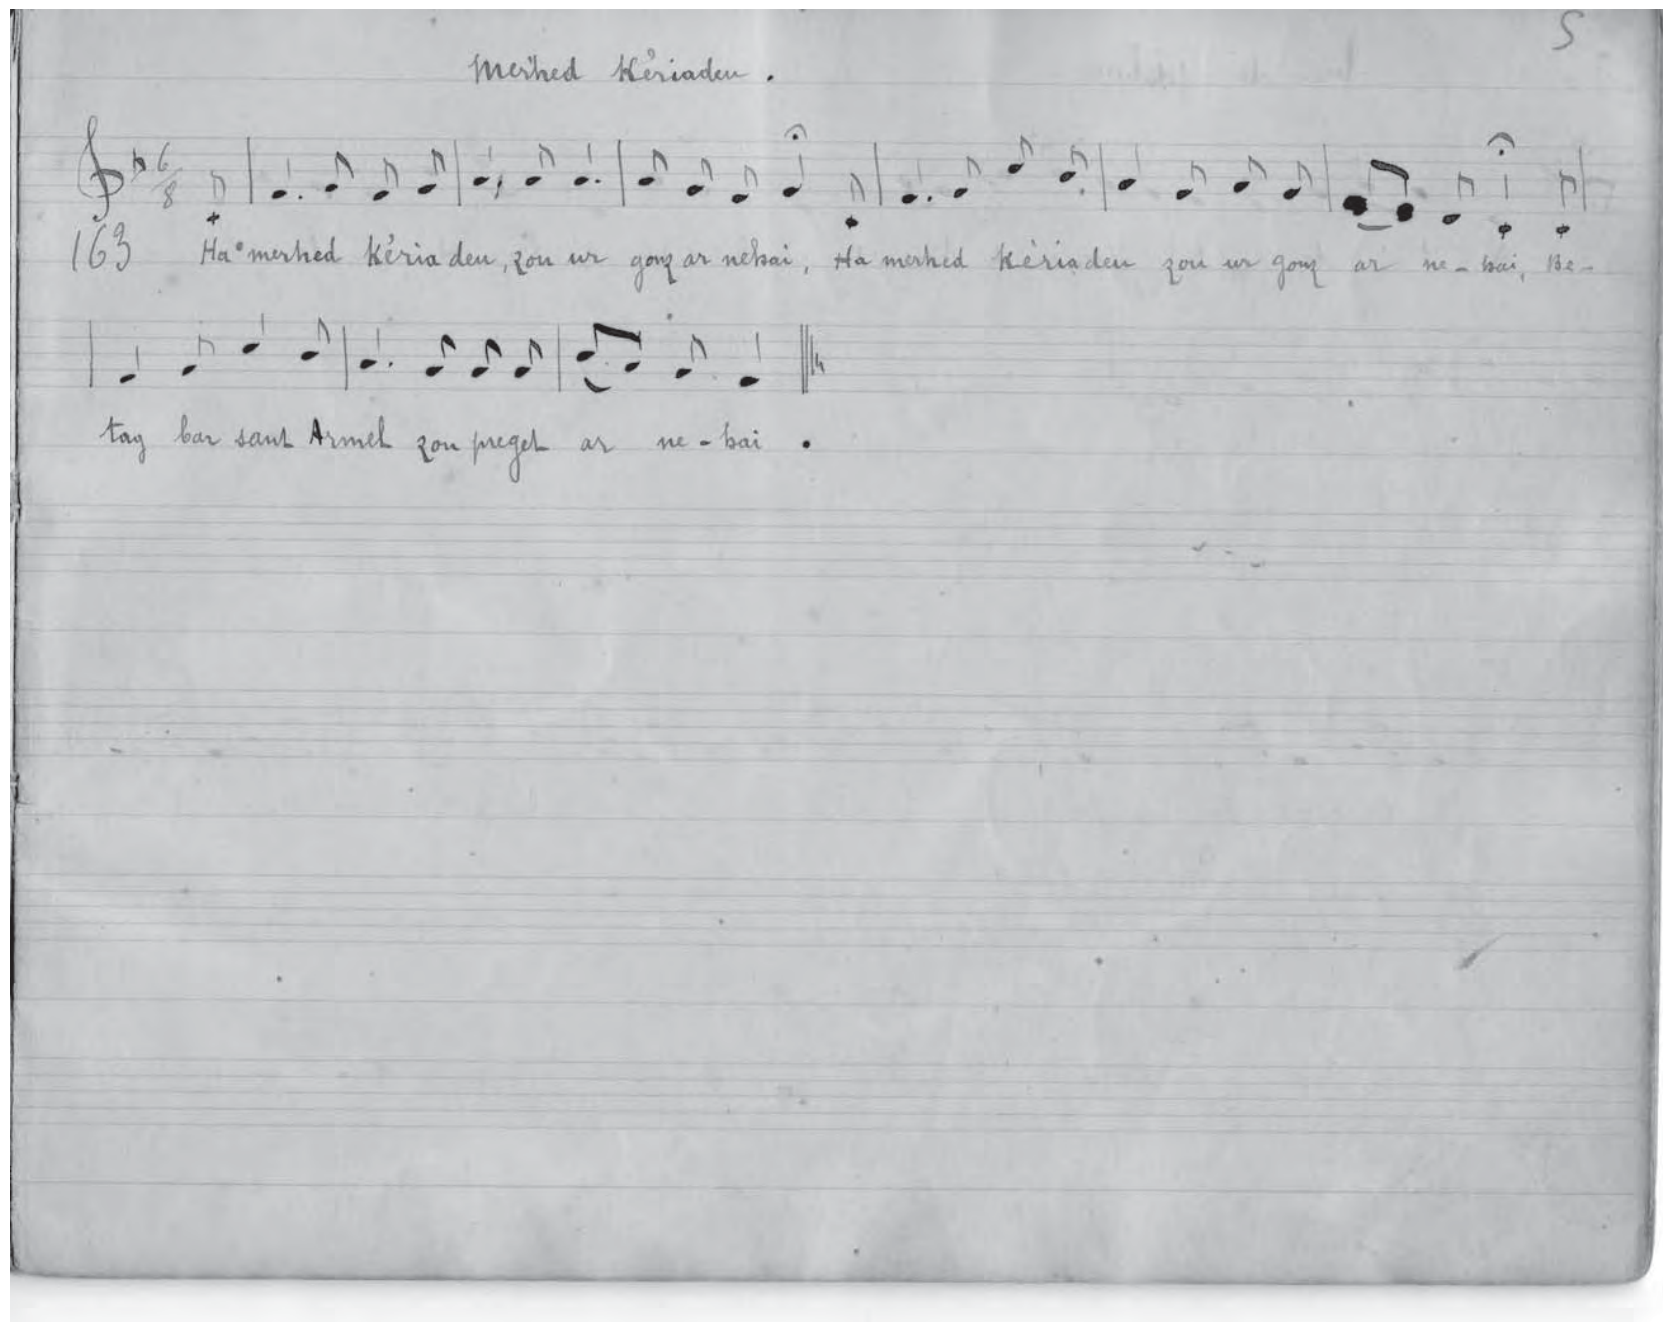 5
Merhed Kériaden.
6/8
163 Ha merhed Kériaden, zou ur gonz ar nehai, Ha merhed Kériaden zou ur gonz ar ne-hai, Be-
tag bar sant Armel zou preget ar ne-hai.